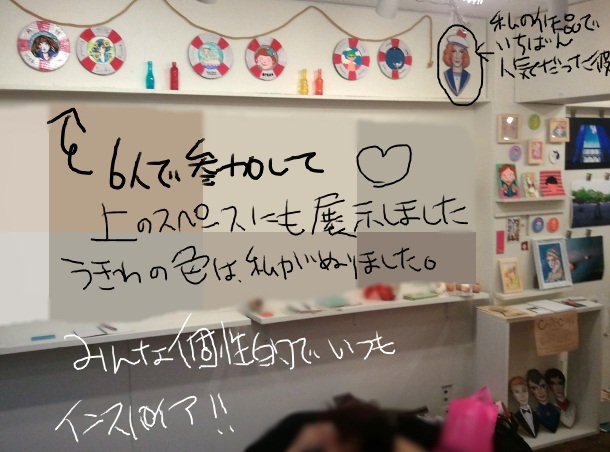 私の作品で
いちばん
人気だった彼
6人で参加して♡
上のスペースにも展示しました
うきわの色は、私がぬりました。
みんな個性的でいつも
インスパイア!!